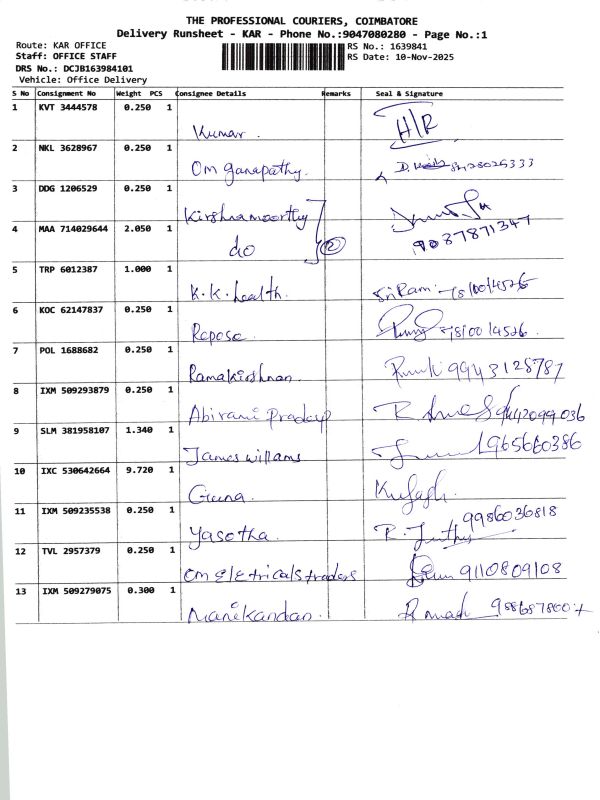 THE PROFESSIONAL COURIERS, COIMBATORE
Delivery Runsheet - KAR - Phone No.:9047080280 - Page No.:1
Route: KAR OFFICE RS No.: 1639841
Staff: OFFICE STAFF RS Date: 10-Nov-2025
DRS No.: DCJB163984101
Vehicle: Office Delivery
S No Consignment No Weight PCS Consignee Details Remarks Seal & Signature
1 KVT 3444578 0.250 1
Kumar. H/R
2 NKL 3628967 0.250 1
Om ganapathy.
3 DDG 1206529 0.250 1
Kirshnamoorthy
4 MAA 714029644 2.050 1
do 2 9087871347
5 TRP 6012387 1.000 1
K.K.health. Sri Ram
6 KOC 62147837 0.250 1
Repose.
7 POL 1688682 0.250 1
Ramakirshnan. 9943128787
8 IXM 509293879 0.250 1
Abirami Pradeep 9442099036
9 SLM 381958107 1.340 1
James willams 1965660386
10 IXC 530642664 9.720 1
Guna.
11 IXM 509235538 0.250 1
Yasotha. 9986036818
12 TVL 2957379 0.250 1
Om Eletricals traders 9110809108
13 IXM 509279075 0.300 1
Manikandan.